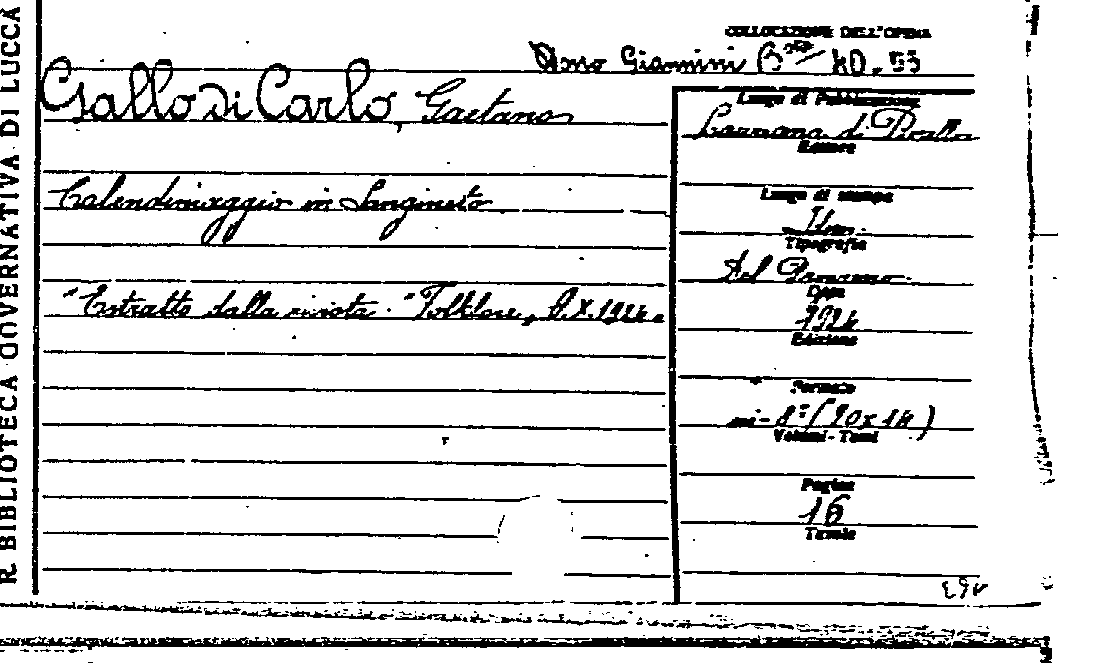 R. BIBLIOTECA GOVERNATIVA DI LUCCA
COLLOCAZIONE DELL'OPERA
Giannini B 40.53
Gallo di Carlo, Gaetano
Calendimaggio in Sangineto
"Estratto dalla rivista "Folklore, X.1924.
Luogo di Pubblicazione
Laureana di
Editore
Luogo di stampa
Idem
Tipografia
Del Progresso
Data
1924
Edizione
Formato
in-8° (20x14)
Volumi-Tomi
Pagine
16
Tavole